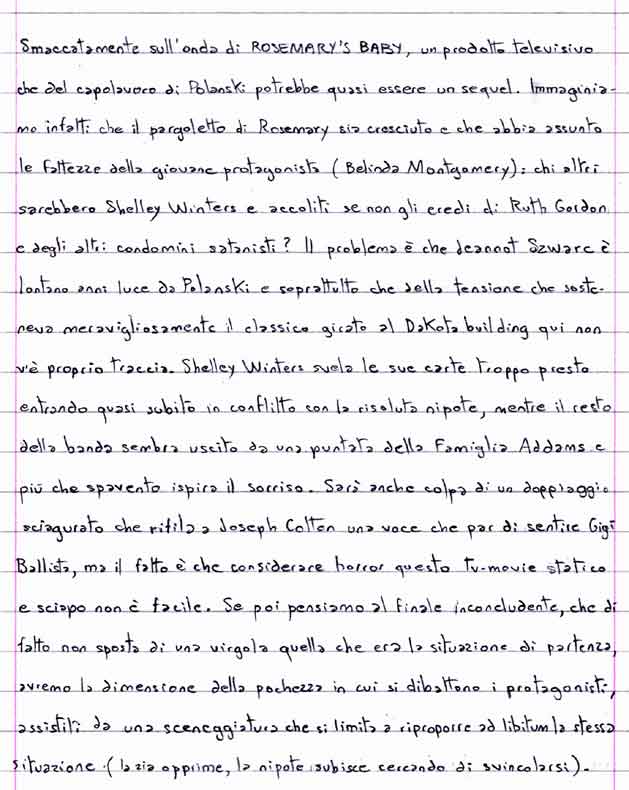 Smaccatamente sull'onda di ROSEMARY'S BABY, un prodotto televisivo
che del capolavoro di Polanski potrebbe quasi essere un sequel. Immaginia-
mo infatti che il pargoletto di Rosemary sia cresciuto e che abbia assunto
le fattezze della giovane protagonista (Belinda Montgomery): chi altri
sarebbero Shelley Winters e accoliti se non gli eredi di Ruth Gordon
e degli altri condomini satanisti? Il problema è che Jeannot Szwarc è
lontano anni luce da Polanski e soprattutto che della tensione che soste-
neva meravigliosamente il classico girato al Dakota building qui non
v'è proprio traccia. Shelley Winters svela le sue carte troppo presto
entrando quasi subito in conflitto con la risoluta nipote, mentre il resto
della banda sembra uscito da una puntata della Famiglia Addams e
più che spavento ispira il sorriso. Sarà anche colpa di un doppiaggio
sciagurato che rifila a Joseph Cotten una voce che par di sentire Gigi
Ballista, ma il fatto è che considerare horror questo tv-movie statico
e sciapo non è facile. Se poi pensiamo al finale inconcludente, che di
fatto non sposta di una virgola quella che era la situazione di partenza,
avremo la dimensione della pochezza in cui si dibattono i protagonisti,
assistiti da una sceneggiatura che si limita a riproporre ad libitum la stessa
situazione (la zia opprime, la nipote subisce cercando di svincolarsi).